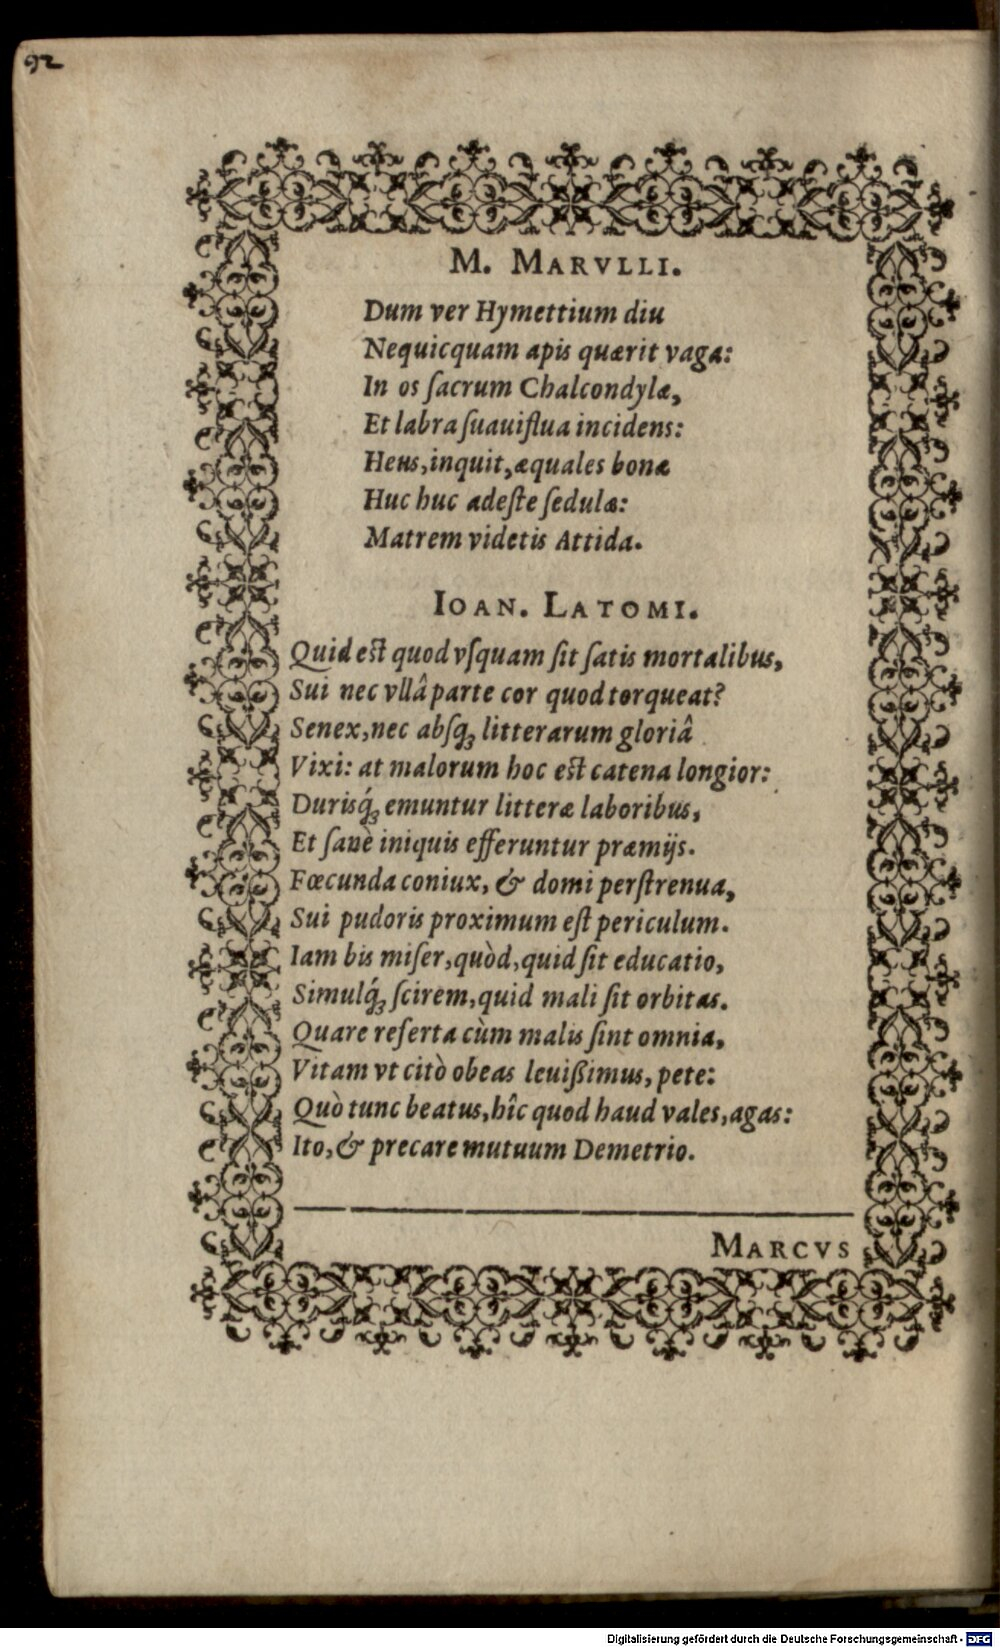 92
M. MARVLLI.
Dum ver Hymettium diu
Nequicquam apis quærit vaga:
In os ſacrum Chalcondylæ,
Et labra ſuauiflua incidens:
Heus, inquit, æquales bonæ
Huc huc adeſte ſedulæ:
Matrem videtis Attida.
IOAN. LATOMI.
Quid eſt quod vſquam ſit ſatis mortalibus,
Sui nec vllâ parte cor quod torqueat?
Senex, nec abſq́ꝫ litterarum gloriâ
Vixi: at malorum hoc eſt catena longior:
Durisq́ꝫ emuntur litteræ laboribus,
Et ſanè iniquis efferuntur præmijs.
Fœcunda coniux, & domi perſtrenua,
Sui pudoris proximum eſt periculum.
Iam bis miſer, quòd, quid ſit educatio,
Simulq́ꝫ ſcirem, quid mali ſit orbitas.
Quare reſerta cùm malis ſint omnia,
Vitam vt citò obeas leuißimus, pete:
Quò tunc beatus, hîc quod haud vales, agas:
Ito, & precare mutuum Demetrio.
MARCVS
Digitalisierung gefördert durch die Deutsche Forschungsgemeinschaft - DFG